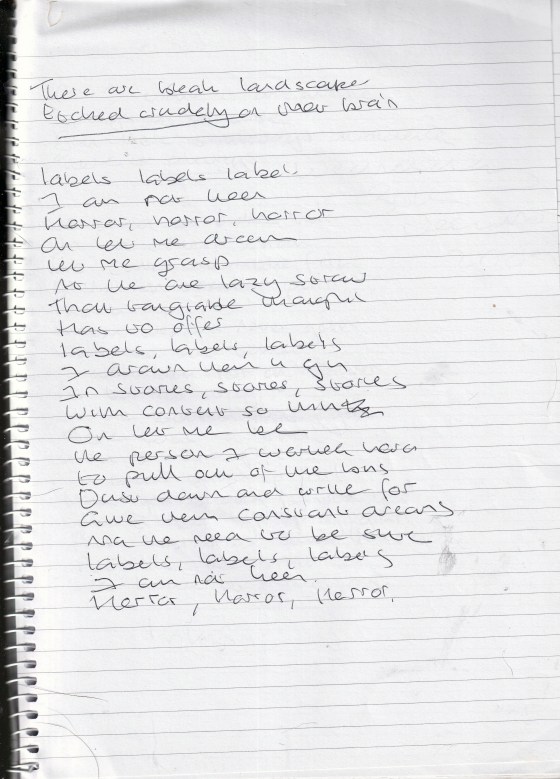 There are bleak landscape
Etched crudely on their brain
labels labels label.
I am not here
Horror, horror, horror
Oh let me dream
let me grasp
At the one lazy straw
That tangible thought
Has to offer
labels, labels, labels
I drown them in gin
In stories, stories, stories
With content so
Oh let me be
the person I worked hard
to pull out of the
Dust down and write for
Give them constant dreams
the need to be sure
Labels, labels, labels
I am not here.
Horror, horror, horror.